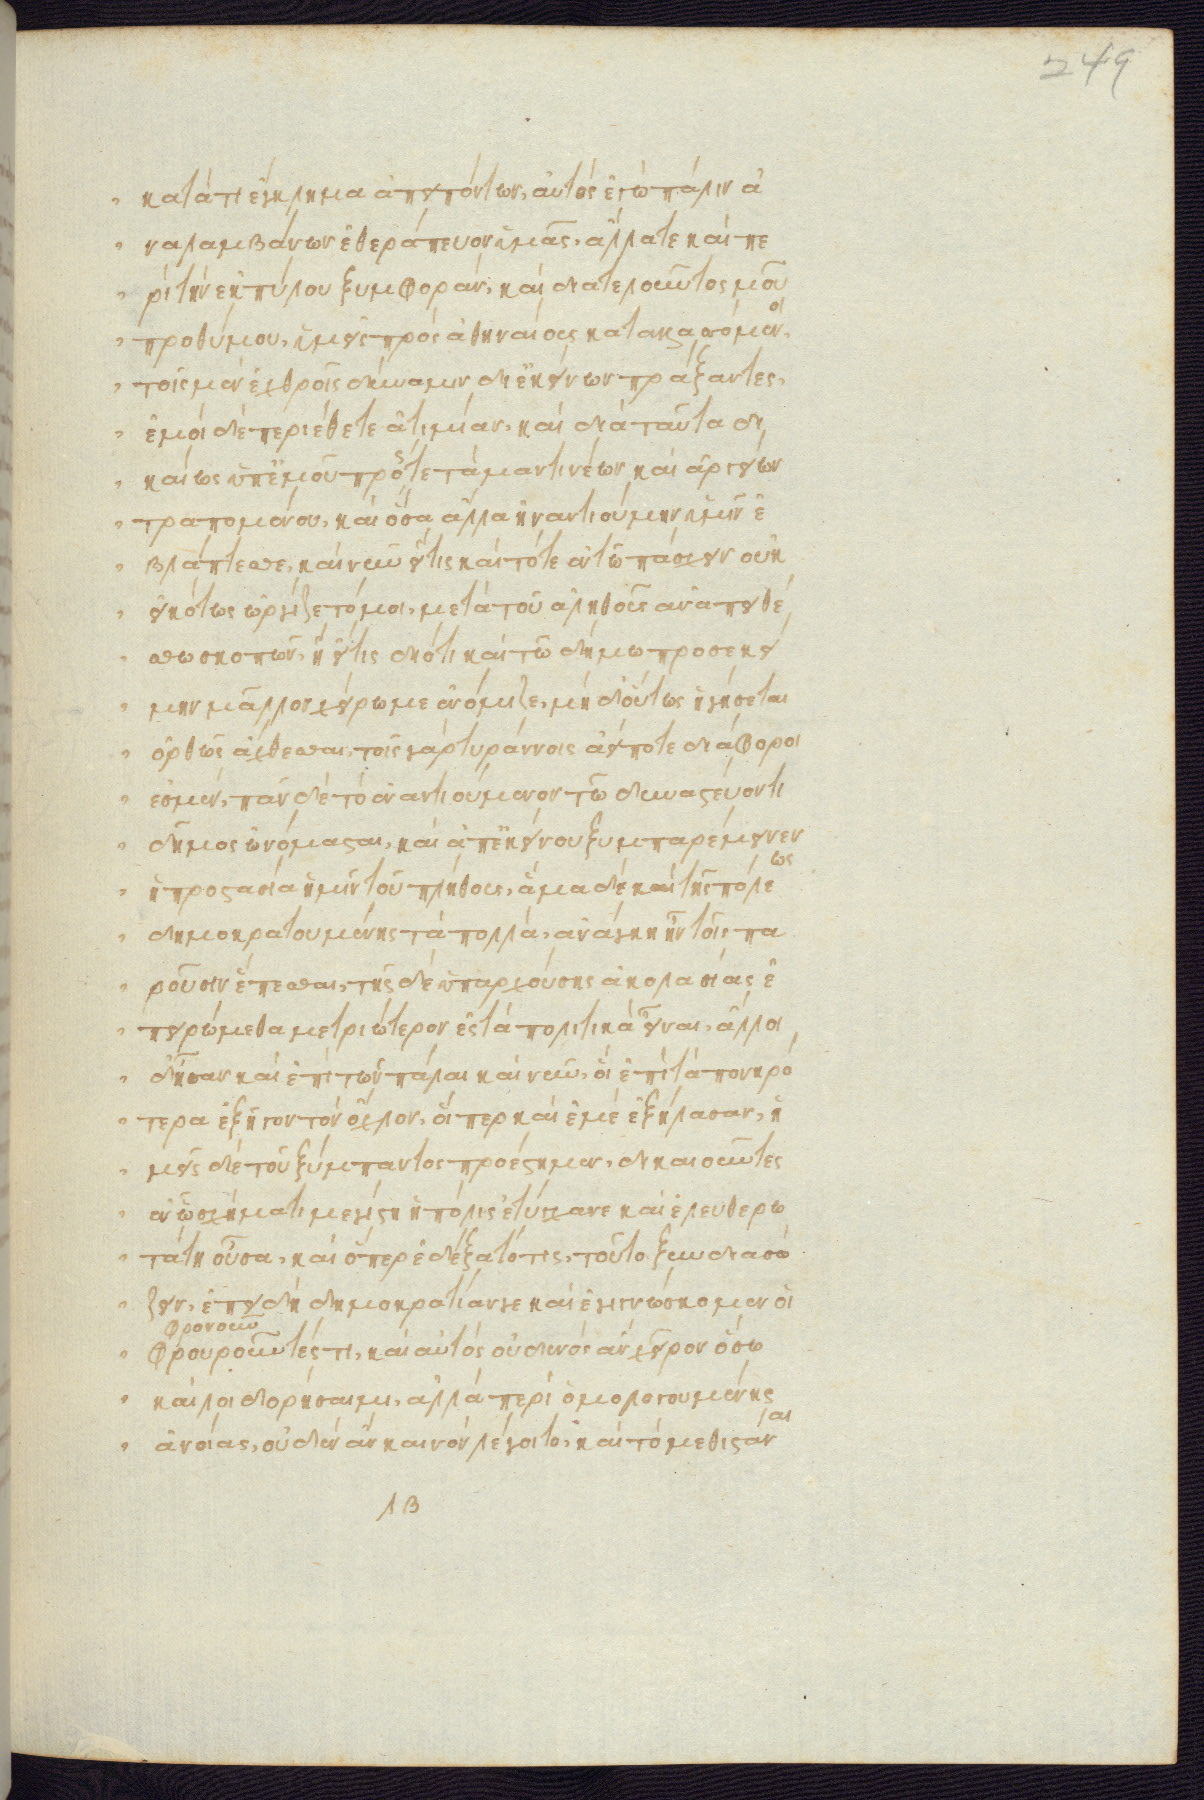 249
κατά τι ἔγκλημα ἀπειπόντων, αὐτὸς ἐγὼ πάλιν ἀ
ναλαμβάνων ἐθεράπευον ὑμᾶς, ἄλλα τε καὶ πε
ρὶ τὴν ἐκ πύλου ξυμφοράν, καὶ διατελοῦντος μου
προθύμου, ὑμεῖς πρὸς ἀθηναίους καταλασσόμενοι,
τοῖς μὲν ἐχθροῖς δύναμιν δι' ἐκείνων πράξαντες,
ἐμοὶ δὲ περιέθετε ἀτιμίαν, καὶ διὰ ταῦτα δι
καίως ὑπ' ἐμοῦ πρός τε τὰ μαντινέων καὶ ἀργείων
τραπομένου, καὶ ὅσα ἄλλα ἠναντιούμην ὑμῖν ἐ
βλάπτεσθε, καὶ νῦν εἴτις καὶ τότε ἐν τῶ πάσχειν οὐκ
εἰκότως ὠργίζετό μοι, μετὰ τοῦ ἀληθοῦς ἀναπειθέ
σθω σκοπῶν, ἢ εἴτις διότι καὶ τῶ δήμω προσεκεί
μην μᾶλλον χείρω με ἐνόμιζε, μὴ δ' οὕτως ἡγήσεται
ὀρθῶς ἄχθεσθαι, τοῖς γὰρ τυράννοις ἀεί ποτε διάφοροι
ἐσμέν, πᾶν δὲ τὸ ἐναντιούμενον τῶ δυναστεύοντι
δῆμος ὠνόμασται, καὶ ἀπ' ἐκείνου ξυμπαρέμεινεν
ἡ προστασία ἡμῖν τοῦ πλήθους, ἅμα δὲ καὶ τῆς πόλεως
δημοκρατουμένης τὰ πολλὰ, ἀνάγκη ἦν τοῖς πα
ροῦσιν ἕπεσθαι, τῆς δὲ ὑπαρχούσης ἀκολασίας ἐ
πειρώμεθα μετριώτερον ἐς τὰ πολιτικὰ εἶναι, ἄλλοι
δ' ἦσαν καὶ ἐπὶ τῶν πάλαι καὶ νῦν, οἳ ἐπὶ τὰ πονηρό
τερα ἐξῆγον τὸν ὄχλον, οἵπερ καὶ ἐμὲ ἐξήλασαν, ἡ
μεῖς δὲ τοῦ ξύμπαντος προέστημεν, δικαιοῦντες
ἐν ὧ σχήματι μεγίστη ἡ πόλις ἐτύγχανε καὶ ἐλευθερω
τάτη οὖσα, καὶ ὅπερ ἐδέξατό τις, τοῦτο ξυνδιασώ
ζειν, ἐπειδὴ δημοκρατίαν γε καὶ ἐγιγνώσκομεν οἱ
φρονοῦν
φρουροῦντές τι, καὶ αὐτὸς οὐδενὸς ἂν χεῖρον ὅσω
καὶ λοιδορήσαιμι, ἀλλὰ περὶ ὁμολογουμένης
ἀνοίας, οὐδὲν ἂν καινὸν λέγοιτο, καὶ τὸ μεθιστάναι
λβ